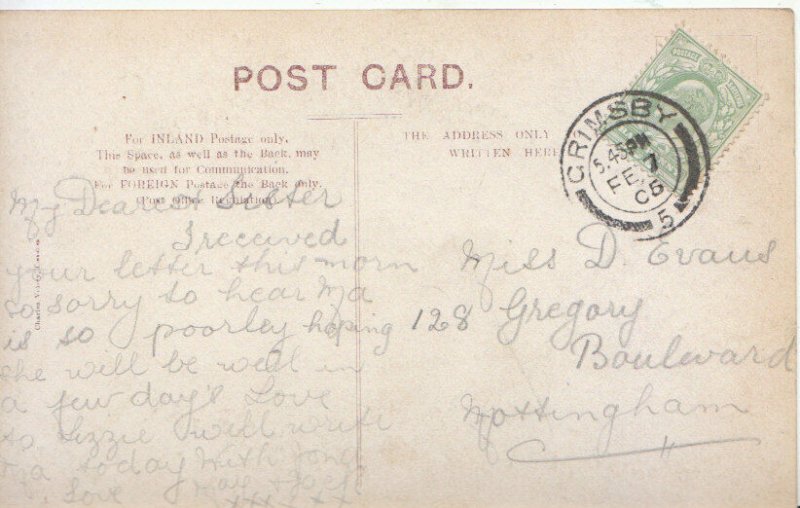 POST CARD.
For INLAND Postage only,
This Space, as well as the Back, may
be used for Communication.
For FOREIGN Postage the Back only.
(Post Office Regulation.)
THE ADDRESS ONLY TO
WRITTEN HERE
GRIMSBY
5.45PM
FE 7
05
5
My Dearest Sister
I received
your letter this morn
so sorry to hear Ma
is so poorley hoping
she will be well in
a few day's Love
to Lizzie will write
today With fond
Love May & Jack
Miss D. Evans
128 Gregory
Boulevard
Nottingham